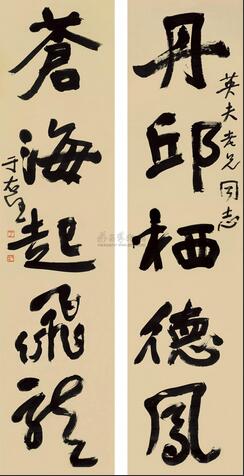 丹邱栖德凤
英夫老兄同志
苍海起飞龙
于右任